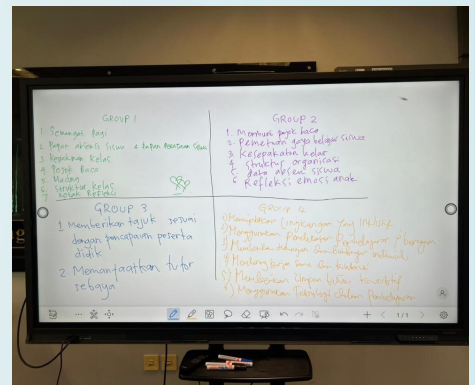 GROUP 1
1. Semangat Pagi
2. Papan absensi Siswa & papan Perasaan Siswa
3. Keyakinan Kelas
4. Pojok Baca
5. Mading
6. Struktur Kelas
7. Kotak Refleksi
GROUP 2
1. Membuat pojok baca
2. Pemetaan gaya belajar siswa
3. Kesepakatan kelas
4. struktur organisasi
5. data absen siswa
6. Refleksi emosi anak
GROUP 3
1. Memberikan tajuk sesuai
dengan pencapaian peserta
didik
2. Memanfaatkan tutor
sebaya
GROUP 4
1) Menciptakan Lingkungan yang inklusif
2) Menggunakan Pendekatan Pembelajaran yg beragam
3) Memberikan dukungan dan bimbingan individual
4) Mendorong kerja sama dan kolaborasi
5) Memberikan Umpan balik konstruktif
6) Menggunakan Teknologi dalam Pembelajaran
1/1